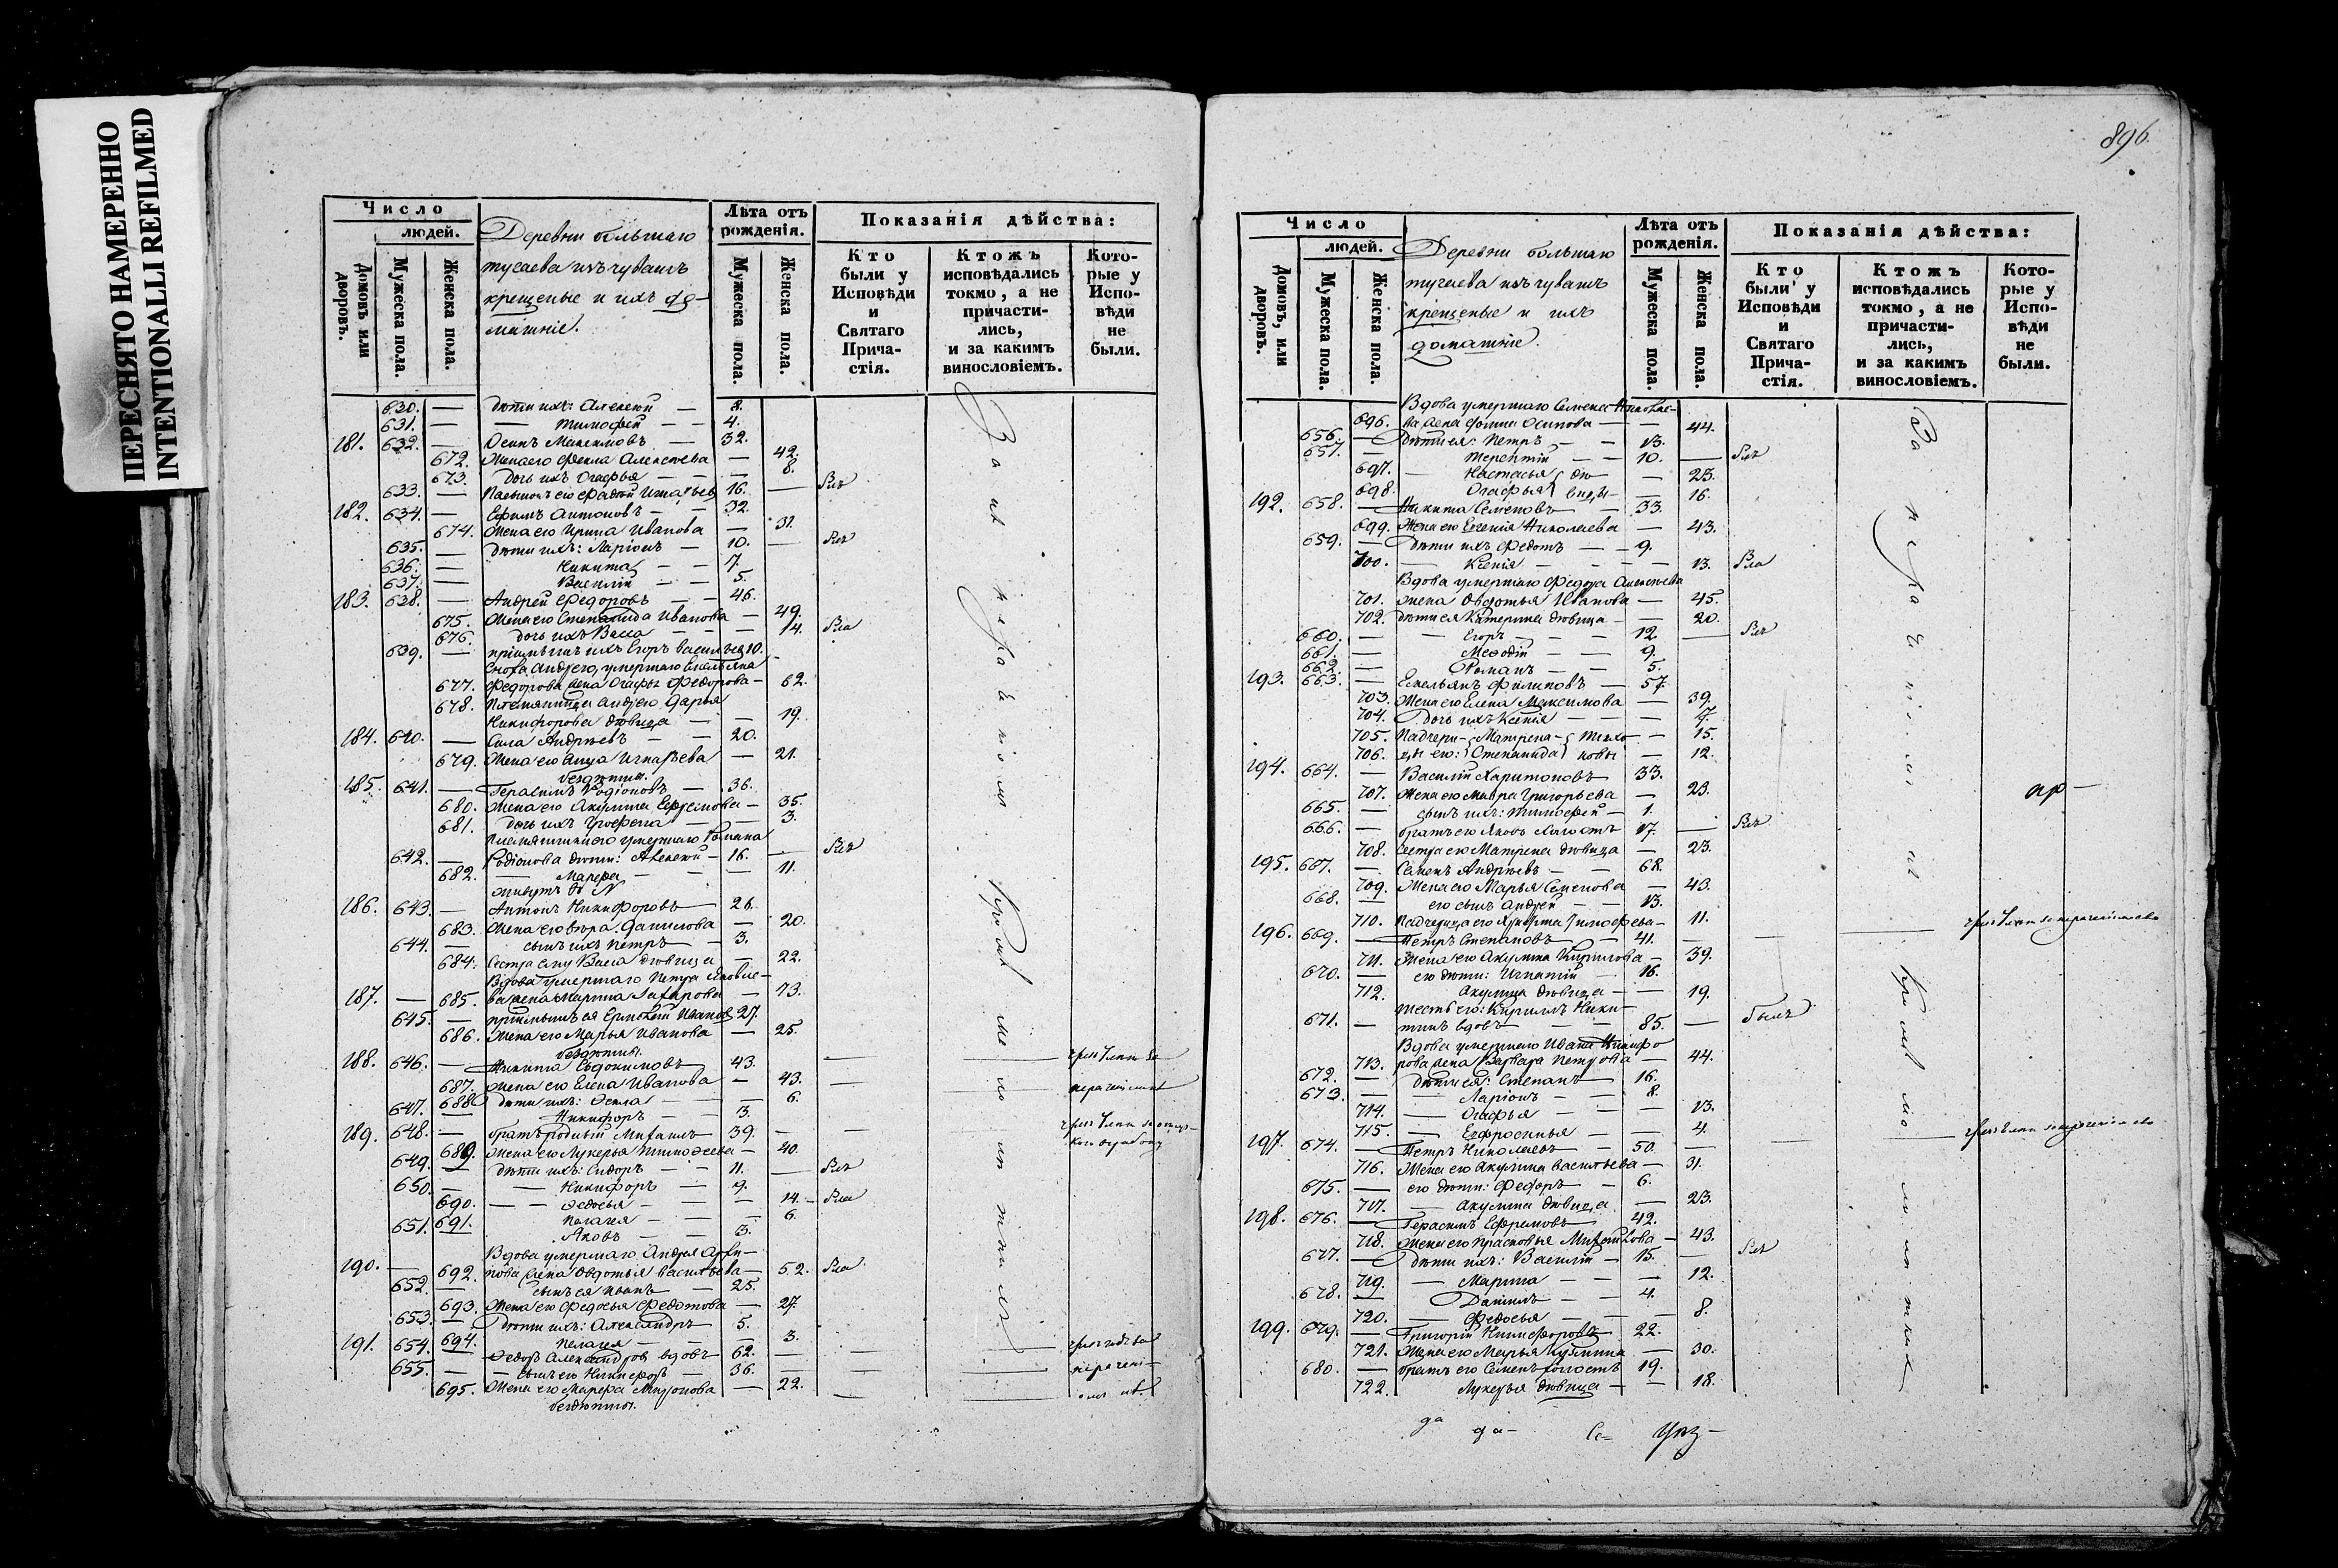 ПЕРЕСНЯТО НАМЕРЕННО
INTENTIONALLI REFILMED
Число
людей.
Домовъ или дворовъ.
Мужеска пола.
Женска пола.
Деревни большаго
тугаева изъ чувашъ
крещеные и ихъ до-
машніе.
Лѣта отъ рожденія.
Мужеска пола.
Женска пола.
Показанія дѣйства:
Кто были у Исповѣди и Святаго Прича-стія.
Ктожъ исповѣдались токмо, а не причасти-лись, и за какимъ винословіемъ.
Кото-рые у Испо-вѣди не были.
630. — дѣти ихъ: Алексей — 8.
631. — — Тимофей — 4.
181. 632. — Осипъ Максимовъ — 32.
672. Жена его Фекла Алексѣева — 42.
673. дочь ихъ Огафья — 8.
633. — Пасынокъ его Фадѣй Игнатьев 16. — былъ
182. 634. — Ефимъ Антоновъ — 32.
674. Жена его Ирина Иванова — 31.
635. — дѣти ихъ: Ларіонъ — 10. — былъ
636. — Никита — 7.
637. — Василій — 5.
183. 638. — Андрей Федоровъ — 46.
675. Жена его Степанида Иванова — 49.
676. дочь ихъ Васса — 14. была
639. — пріимышъ ихъ Егоръ Васильев 10.
Сноха Андрею, умершаго Емельяна
677. Федорова жена Огафья Федорова — 62.
678. Племянница Андрею Дарья
Никифорова дѣвица — 19.
184. 640. — Сила Андрѣевъ — 20.
679. Жена его Анна Игнатьева — 21.
бездѣтны.
185. 641. — Герасимъ Родіоновъ — 36.
680. Жена его Акулина Ефремова — 35.
681. дочь ихъ — 3.
Племянники его умершаго Романа
642. — Родіонова дѣти: Алексей — 16. — былъ
682. — Марфа — 11.
живутъ въ N
186. 643. — Антонъ Никифоровъ — 26.
683. Жена его Вѣра Данилова — 20.
644. — сынъ ихъ Петръ — 3.
684. Сестра ему Васса дѣвица — 22.
Вдова умершаго Петра Яковле-
187. — 685. ва жена Марина Захарова — 73.
645. — пріимышъ ея Ермолай Иванов 27.
686. Жена его Марья Иванова — 25.
бездѣтны.
188. 646. — Никита Евдокимовъ — 43.
687. Жена его Елена Иванова — 43.
688. дѣти ихъ: Фекла — 6.
647. — Никифоръ — 3.
189. 648. — братъ родный Михаилъ — 39.
689. Жена его Лукерья Тимофеева — 40.
649. — дѣти ихъ: Сидоръ — 11. — былъ
650. — — Никифоръ — 9.
690. — — Федосья — 14. — была
691. Пелагея — 6.
651. — Яковъ — 3.
Вдова умершаго Андрея Архи-
190. — 692. пова жена Овдотья Васильева — 52. была
652. — сынъ ея Иванъ — 25.
693. Жена его Федосья Федотова — 27.
653. — дѣти ихъ: Александръ 5.
694. Пелагея — 3.
191. 654. — Федоръ Александров вдовъ 62. —
655. — — сынъ его Никифоръ — 36. —
695. Жена его Марфа Миронова — 22. —
бездѣтны.
896.
Число
людей.
Домовъ, или дворовъ.
Мужеска пола.
Женска пола.
Деревни большаго
тугаева изъ чувашъ
крещеные и ихъ
домашніе.
Лѣта отъ рожденія.
Мужеска пола.
Женска пола.
Показанія дѣйства:
Кто были у Исповѣди и Святаго Прича-стія.
Ктожъ исповѣдались токмо, а не причасти-лись, и за какимъ винословіемъ.
Кото-рые у Испо-вѣди не были.
Вдова умершаго Семена Николае-
696. ва жена Фоина Осипова — 44.
656. — дѣти ея: Петръ — 13.
657. — Терентій — 10. — былъ
697. — Настасья дѣ — 23.
698. Огафья вицы — 16.
192. 658. — Никита Семеновъ — 33.
699. Жена его Евгенія Николаева — 43.
659. — дѣти ихъ Федотъ — 9.
700. — Ксенія — 13. была
Вдова умершаго Федора Алексѣева
701. жена Овдотья Иванова — 45.
702. дѣти ея Катерина дѣвица — 20.
660. — — Егоръ — 12. — былъ
661. — Мефодій — 9.
662. — Романъ — 5.
193. 663. — Емельянъ Филиповъ — 57.
703. Жена его Елена Максимова — 39.
704. дочь ихъ Ксенія — 7.
705. Падчери- Матрена Тихо — 15.
706. цы его: Степанида новы — 12.
194. 664. — Василій Харитоновъ 33.
707. Жена его Мавра Григорьева — 23.
665. — сынъ ихъ: Тимофей — 1.
666. — братъ его Яковъ холостъ 17. — былъ
708. сестра его Матрена дѣвица — 23.
195. 667. — Семенъ Андрѣевъ — 68.
709. Жена его Марья Семенова — 43.
668. — его сынъ Андрей — 13.
710. Падчерица его Акулина Тимофеева — 11.
196. 669. — Петръ Степановъ — 41. —
711. Жена его Акулина Кирилова — 39.
670. — его дѣти: Игнатій — 16.
712. Акулина дѣвица — 19.
тесть его: Кирилъ Ники-
671. — тинъ вдовъ — 85. — былъ
Вдова умершаго Ивана Никифо
713. рова жена Варвара Петрова — 44.
672. — дѣти ея: Степанъ 16.
673. — — Ларіонъ — 8.
714. — Огафья — 13.
715. — Евфросинья — 4.
197. 674. — Петръ Николаевъ — 50. —
716. Жена его Акулина Васильева — 31.
675. — его дѣти: Федоръ — 6.
717. — Акулина дѣвица — 23.
198. 676. — Герасимъ Ефремовъ 42.
718. Жена его Прасковья Михайлова — 43.
677. — дѣти ихъ: Василій — 15. — былъ
719. — Марина — 12.
678. — Даніилъ — 4.
720. — Федосья — 8.
199. 679. — Григорій Никифоровъ 22.
721. Жена его Марья Кузмина — 30.
680. — братъ его Семенъ холостъ 19.
722. Лукерья дѣвица — 18.